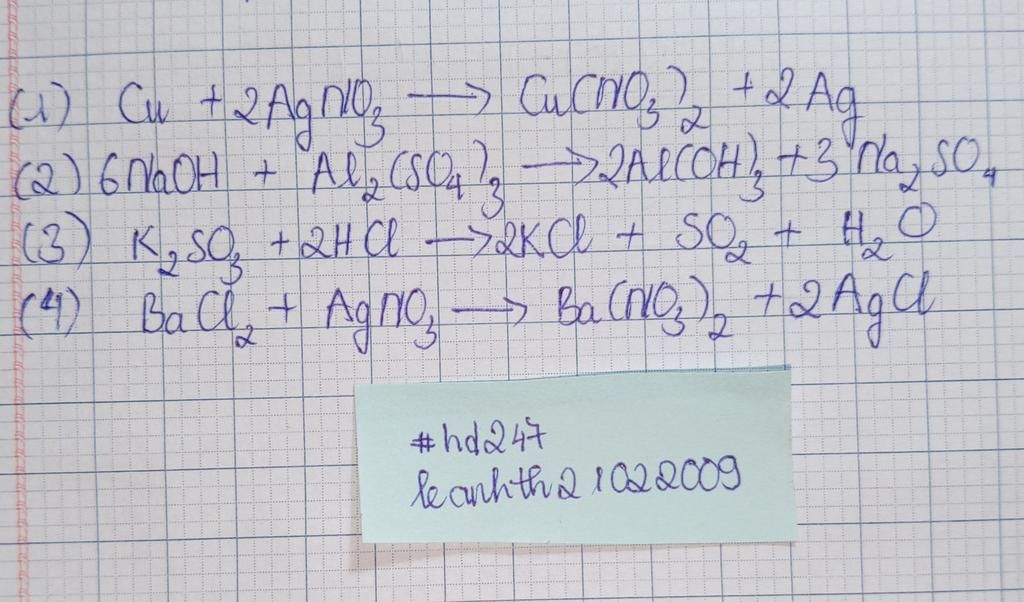 (1) Cu + 2AgNO₃ ⟶ Cu(NO₃)₂ + 2Ag
(2) 6NaOH + Al₂(SO₄)₃ ⟶ 2Al(OH)₃ + 3Na₂SO₄
(3) K₂SO₃ + 2HCl ⟶ 2KCl + SO₂ + H₂O
(4) BaCl₂ + AgNO₃ ⟶ Ba(NO₃)₂ + 2AgCl
#hd247
leanhth21022009